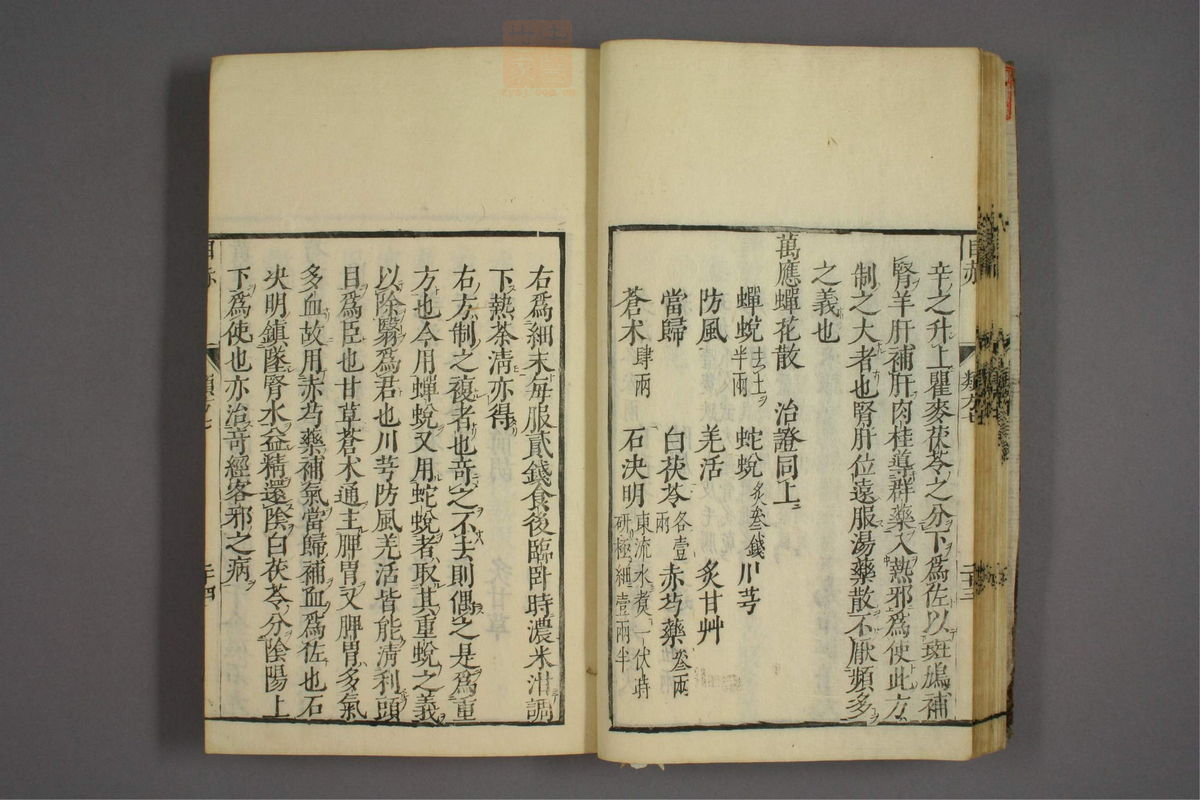 辛之升上瞿麥茯苓之分下爲佐以斑鳩補
腎羊肝補肝肉桂導群藥入熱邪爲使此方
制之大者也腎肝位遠服湯藥散不厭頻多
之義也
萬應蟬花散 治證同上
蟬蛻去土半兩 蛇蛻炙叁錢 川芎
防風 羌活 炙甘艸
當歸 白茯苓各壹兩 赤芍藥叁兩
蒼术肆兩 石決明東流水煮一伏時研極細壹兩半
右爲細末每服貳錢食後臨臥時濃米泔調
下熱茶淸亦得
右方制之複者也奇之不去則偶之是爲重
方也今用蟬蛻又用蛇蛻者取其重蛻之義
以除翳爲君也川芎防風羌活皆能淸利頭
目爲臣也甘草蒼术通主脾胃又脾胃多氣
多血故用赤芍藥補氣當歸補血爲佐也石
决明鎮墜腎水益精還陰白茯苓分陰陽上
下爲使也亦治奇經客邪之病
二十四